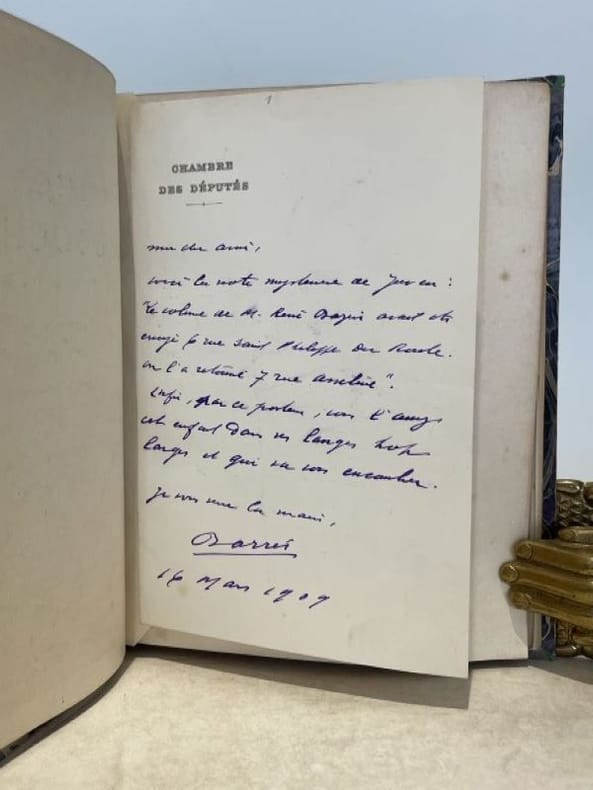 1
CHAMBRE
DES DÉPUTÉS
mon cher ami,
voici la note mystérieuse de Juven :
"Le volume de M. René Bazin avait été
envoyé 6 rue Saint Philippe du Roule.
on l'a retourné 7 rue
Enfin, par ce porteur, vous l'aurez
cet enfant dans ses langes trop
larges et qui va vous encombrer.
Je vous serre la main,
Barrès
16 Mars 1909